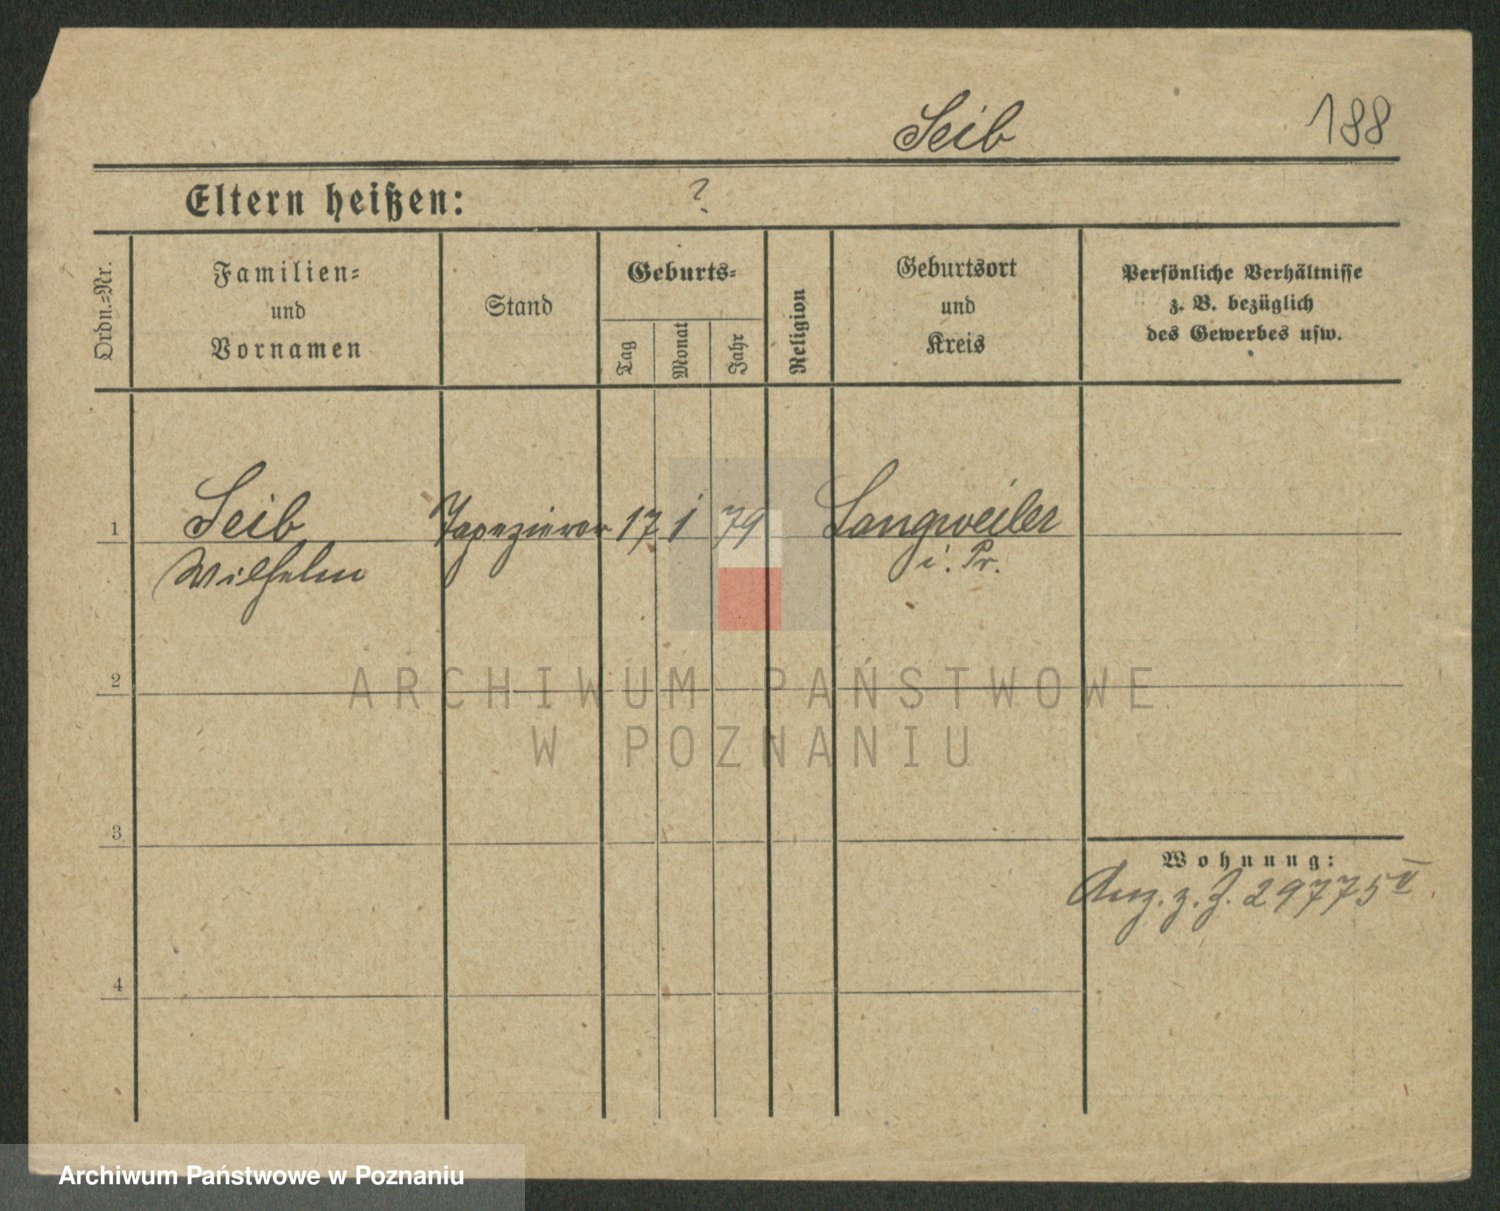 Seib
188
Eltern heißen: ?
Ordn.=Nr.
Familien=
und
Vornamen
Stand
Geburts=
Tag
Monat
Jahr
Religion
Geburtsort
und
Kreis
Persönliche Verhältnisse
z. B. bezüglich
des Gewerbes usw.
1
Seib
Wilhelm
Tapezierer
17
1
79
Langweiler
i. Pr.
2
3
4
Wohnung:
Anz. z. J. 29775 V
ARCHIWUM PAŃSTWOWE
W POZNANIU
Archiwum Państwowe w Poznaniu